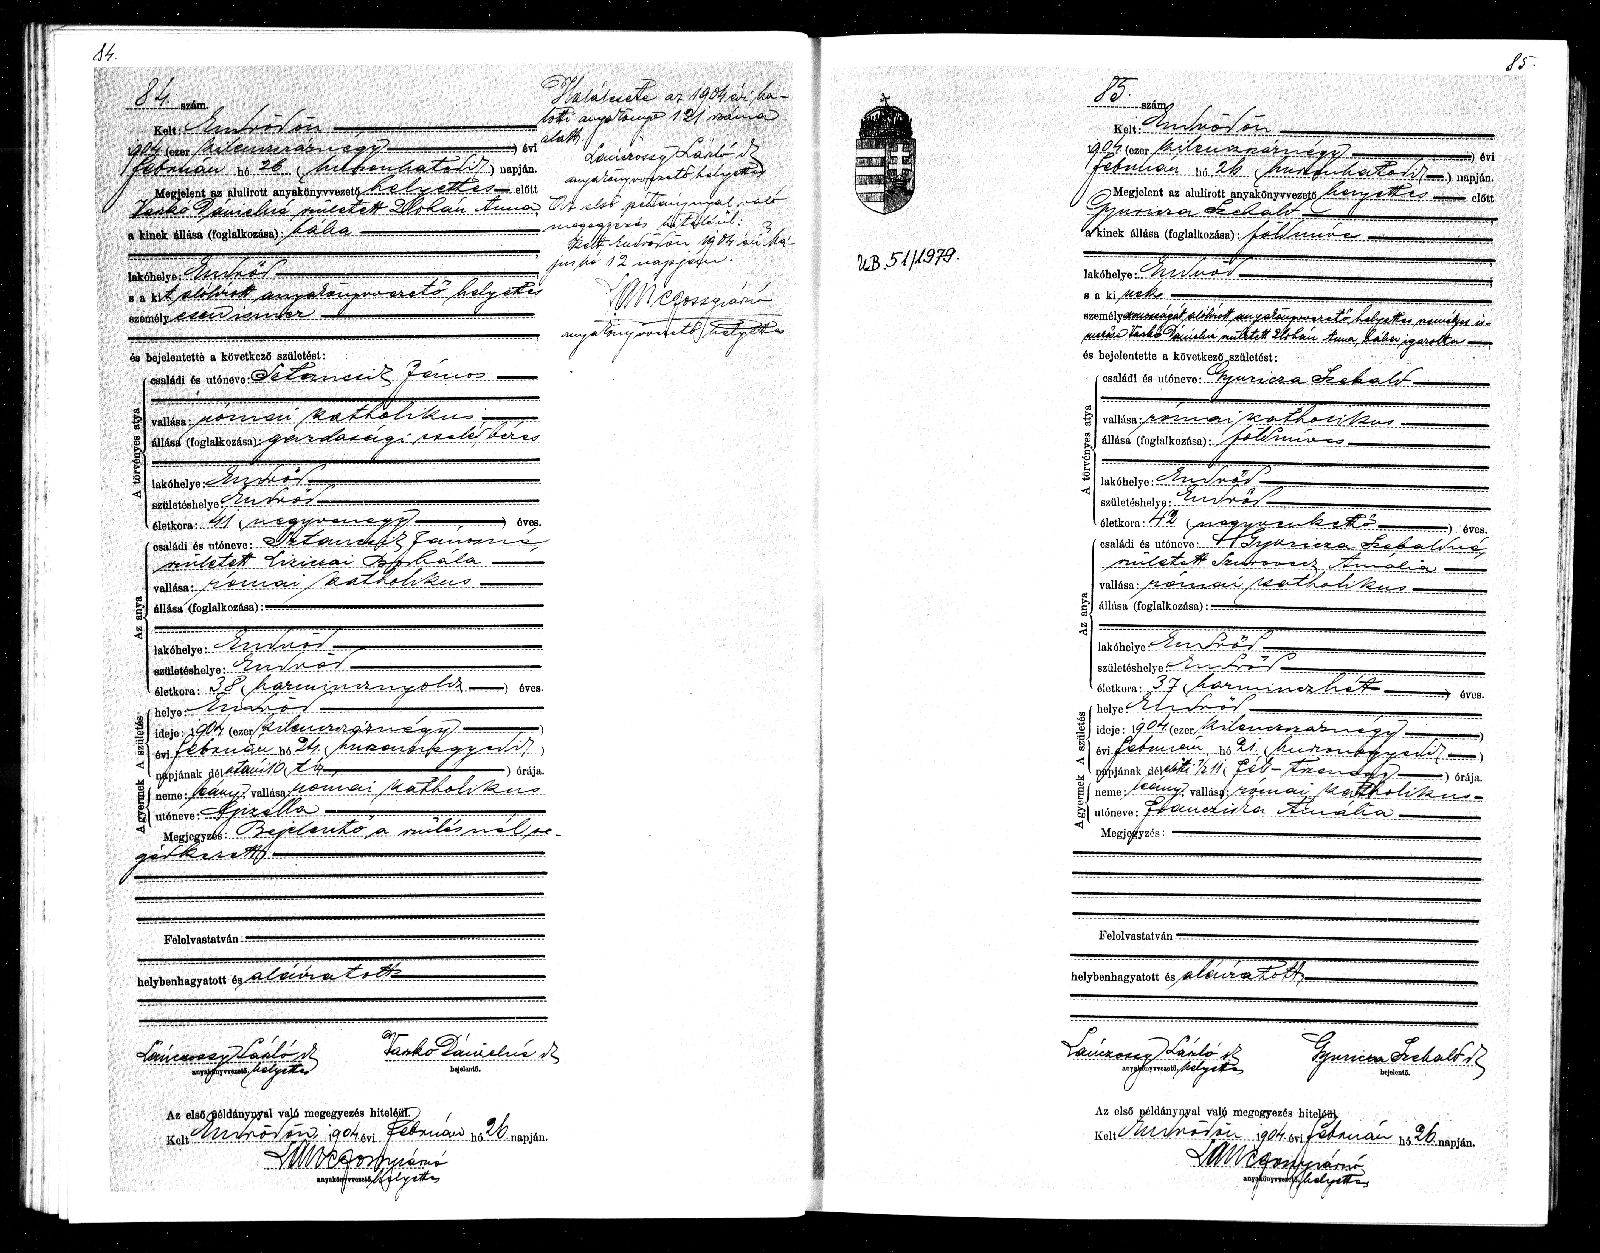 84.
84. szám.
Kelt: Endrődön
1904 (ezer kilenczszáznégy) évi
február hó 26 (huszonhatodik) napján.
Megjelent az alulirott anyakönyvvezető helyettes előtt
Varkó Dánielné született Anna
a kinek állása (foglalkozása): bába
lakóhelye: Endrőd
s a kit alólirott anyakönyvvezető helyettes
személyesen ismer
és bejelentette a következő születést:
A törvényes atya
családi és utóneve: János
vallása: római katholikus
állása (foglalkozása): gazdasági cseléd béres
lakóhelye: Endrőd
születéshelye: Endrőd
életkora: 41 (negyvenegy) éves.
Az anya
családi és utóneve: Jánosné
született
vallása: római katholikus
állása (foglalkozása):
lakóhelye: Endrőd
születéshelye: Endrőd
életkora: 38 (harmincznyolcz) éves.
A születés
helye: Endrőd
ideje: 1904 (ezer kilenczszáznégy)
évi február hó 24 (huszonnegyedik)
napjának délutáni 10 (tíz) órája.
A gyermek
neme: leány vallása: római katholikus
utóneve:
Megjegyzés: Bejelentő a szülésnél se-
gédkezett
Felolvastatván
helybenhagyatott és aláiratott
Lánczossy László sk
anyakönyvvezető, helyettes
Varkó Dánielné sk
bejelentő.
Az első példánynyal való megegyezés hiteléül.
Kelt Endrődön, 1904 évi február hó 26 napján.
anyakönyvvezető, helyettes
Halálesete az 1904 évi ha-
lotti anyakönyv 121 száma
alatt.
Lánczossy László sk
anyakönyvvezető helyettes
Az első példánynyal való
megegyezés hiteléül:
Kelt Endrődön 1904 évi má-
jus hó 12 napján.
anyakönyvvezető helyettes
85.
UB. 51/1979.
85. szám
Kelt: Endrődön
1904 (ezer kilenczszáznégy) évi
február hó 26 (huszonhatodik) napján.
Megjelent az alulirott anyakönyvvezető helyettes előtt
Gyuricza Szebáld
a kinek állása (foglalkozása): földmíves
lakóhelye: Endrőd
s a kinek
személyazonosságát alólirott anyakönyvvezető helyettes személyes is-
Varkó Dánielné született Anna, bába igazolta
és bejelentette a következő születést:
A törvényes atya
családi és utóneve: Gyuricza Szebáld
vallása: római katholikus
állása (foglalkozása): földmíves
lakóhelye: Endrőd
születéshelye: Endrőd
életkora: 42 (negyvenkettő) éves.
Az anya
családi és utóneve: Gyuricza Szebáldné
született Amália
vallása: római katholikus
állása (foglalkozása):
lakóhelye Endrőd
születéshelye Endrőd
életkora: 37 (harminczhét) éves.
A születés
helye Endrőd
ideje: 1904 (ezer kilenczszáznégy)
évi február hó 21 (huszonegyedik)
napjának délelőtti 1/2 11 (fél-tizenegy) órája.
A gyermek
neme: leány vallása: római katholikus
utóneve: Francziska Amália
Megjegyzés:
Felolvastatván
helybenhagyatott és aláiratott
Lánczossy László sk
anyakönyvvezető, helyettes
Gyuricza Szebáld sk
bejelentő.
Az első példánynyal való megegyezés hiteléül.
Kelt Endrődön 1904 évi február hó 26 napján.
anyakönyvvezető, helyettes